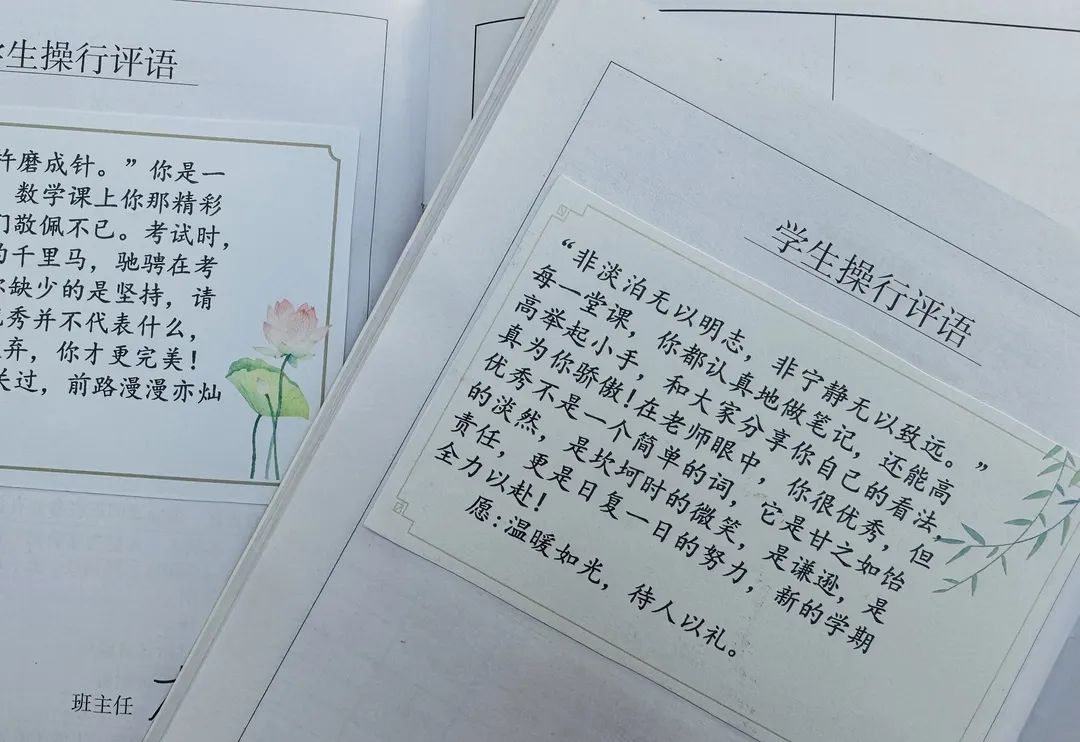 学生操行评语
杵磨成针。”你是一
数学课上你那精彩
们敬佩不已。考试时，
的千里马，驰骋在考
你缺少的是坚持，请
优秀并不代表什么，
弃，你才更完美！
关过，前路漫漫亦灿
班主任
学生操行评语
“非淡泊无以明志，非宁静无以致远。”
每一堂课，你都认真地做笔记，还能高
高举起小手，和大家分享你自己的看法，
真为你骄傲！在老师眼中，你很优秀，但
优秀不是一个简单的词，它是甘之如饴
的淡然，是坎坷时的微笑，是谦逊，是
责任，更是日复一日的努力，新的学期
全力以赴！
愿：温暖如光，待人以礼。